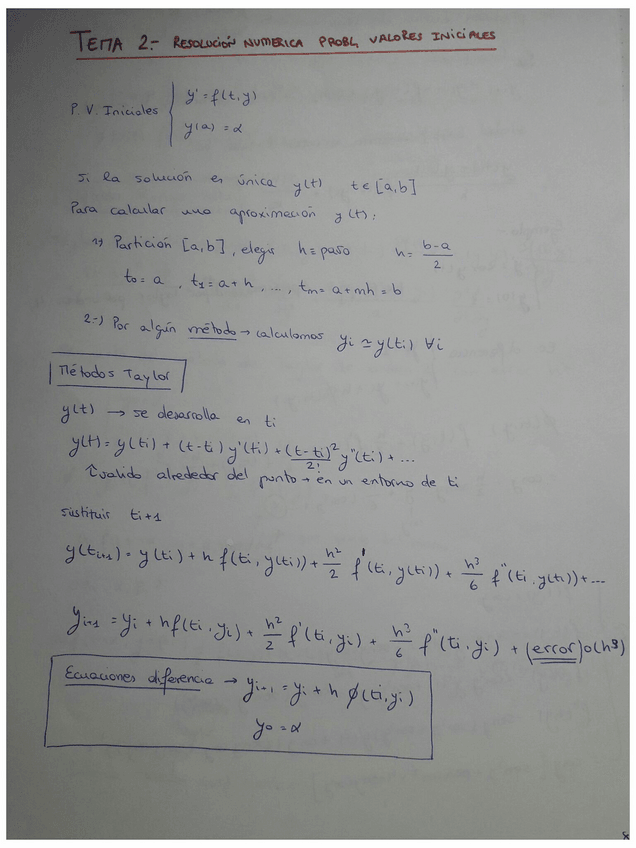 TEMA 2.- RESOLUCIÓN NUMERICA PROBL, VALORES INICIALES
P. V. Iniciales { y' = f(t,y)
y(a) = α
Si la solución es única y(t) t ∈ [a,b]
Para calcular una aproximación y(t):
1) Partición [a,b], elegir h ≡ paso h = (b-a)/2
t0 = a, t1 = a+h, ..., tm = a+mh = b
2-) Por algún método → calculamos yi ≃ y(ti) ∀i
Métodos Taylor
y(t) → se desarrolla en ti
y(t) = y(ti) + (t-ti) y'(ti) + (t-ti)²/2! y''(ti) + ...
↑ valido alrededor del punto → en un entorno de ti
sustituir ti+1
y(ti+1) = y(ti) + h f(ti, y(ti)) + h²/2 f'(ti, y(ti)) + h³/6 f''(ti, y(ti)) + ...
yi+1 = yi + hf(ti, yi) + h²/2 f'(ti, yi) + h³/6 f''(ti, yi) + (error) o(h³)
Ecuaciones diferencia → yi+1 = yi + h ϕ(ti, yi)
y0 = α